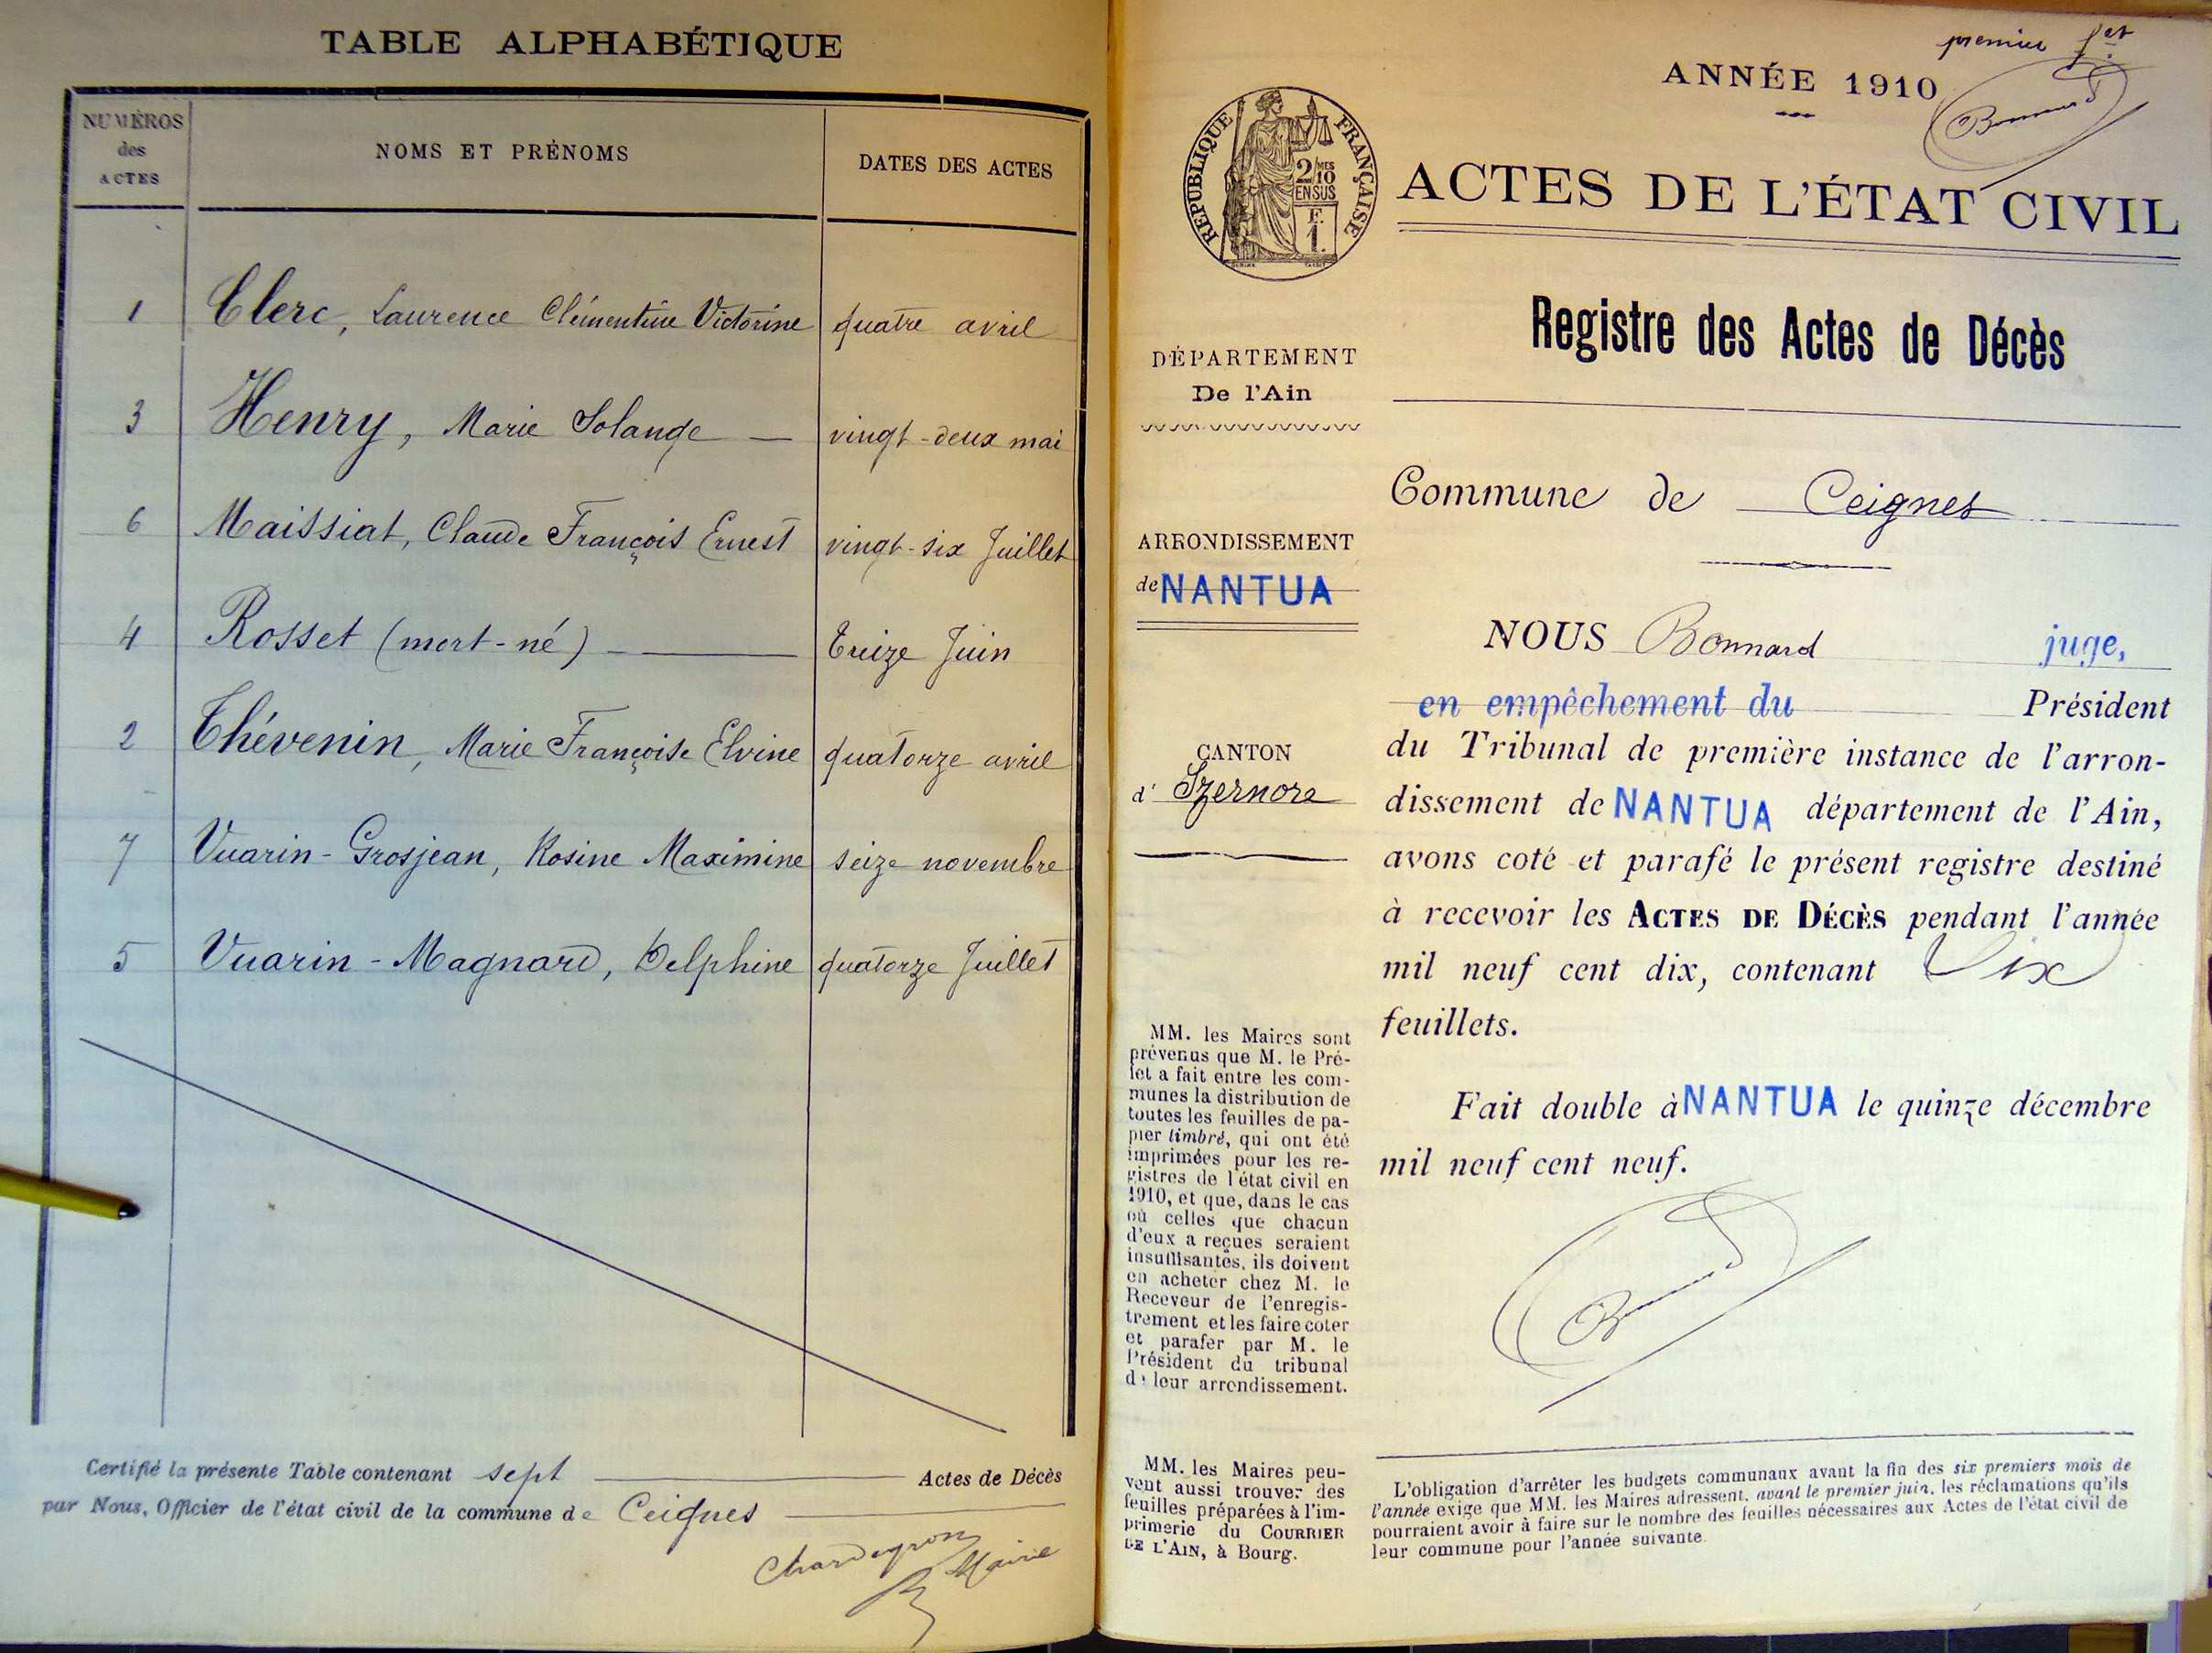 TABLE ALPHABÉTIQUE
NUMÉROS
des
ACTES
NOMS ET PRÉNOMS
DATES DES ACTES
1 Clerc, Laurence Clémentine Victorine quatre avril
3 Henry, Marie Solange — vingt-deux mai
6 Maissiat, Claude François Ernest vingt-six Juillet
4 Rosset (mort-né) — Treize Juin
2 Thévenin, Marie Françoise Elvine quatorze avril
7 Vuarin-Grosjean, Rosine Maximine seize novembre
5 Vuarin-Magnard, Delphine quatorze Juillet
Certifié la présente Table contenant sept Actes de Décès
par Nous, Officier de l'état civil de la commune de Ceignes
Chardeyron
Maire
premier fet
ANNÉE 1910
Bonnard
RÉPUBLIQUE FRANÇAISE
2/10 MES
EN SUS
F.
1.
ACTES DE L'ÉTAT CIVIL
Registre des Actes de Décès
DÉPARTEMENT
De l'Ain
ARRONDISSEMENT
de NANTUA
CANTON
d' Izernore
MM. les Maires sont
prévenus que M. le Pré-
fet a fait entre les com-
munes la distribution de
toutes les feuilles de pa-
pier timbré, qui ont été
imprimées pour les re-
gistres de l'état civil en
1910, et que, dans le cas
où celles que chacun
d'eux a reçues seraient
insuffisantes, ils doivent
en acheter chez M. le
Receveur de l'enregis-
trement et les faire coter
et parafer par M. le
Président du tribunal
de leur arrondissement.
MM. les Maires peu-
vent aussi trouver des
feuilles préparées à l'im-
primerie du COURRIER
DE L'AIN, à Bourg.
Commune de Ceignes
NOUS Bonnard juge,
en empêchement du Président
du Tribunal de première instance de l'arron-
dissement de NANTUA département de l'Ain,
avons coté et parafé le présent registre destiné
à recevoir les ACTES DE DÉCÈS pendant l'année
mil neuf cent dix, contenant Six
feuillets.
Fait double à NANTUA le quinze décembre
mil neuf cent neuf.
L'obligation d'arrêter les budgets communaux avant la fin des six premiers mois de
l'année exige que MM. les Maires adressent, avant le premier juin, les réclamations qu'ils
pourraient avoir à faire sur le nombre des feuilles nécessaires aux Actes de l'état civil de
leur commune pour l'année suivante.